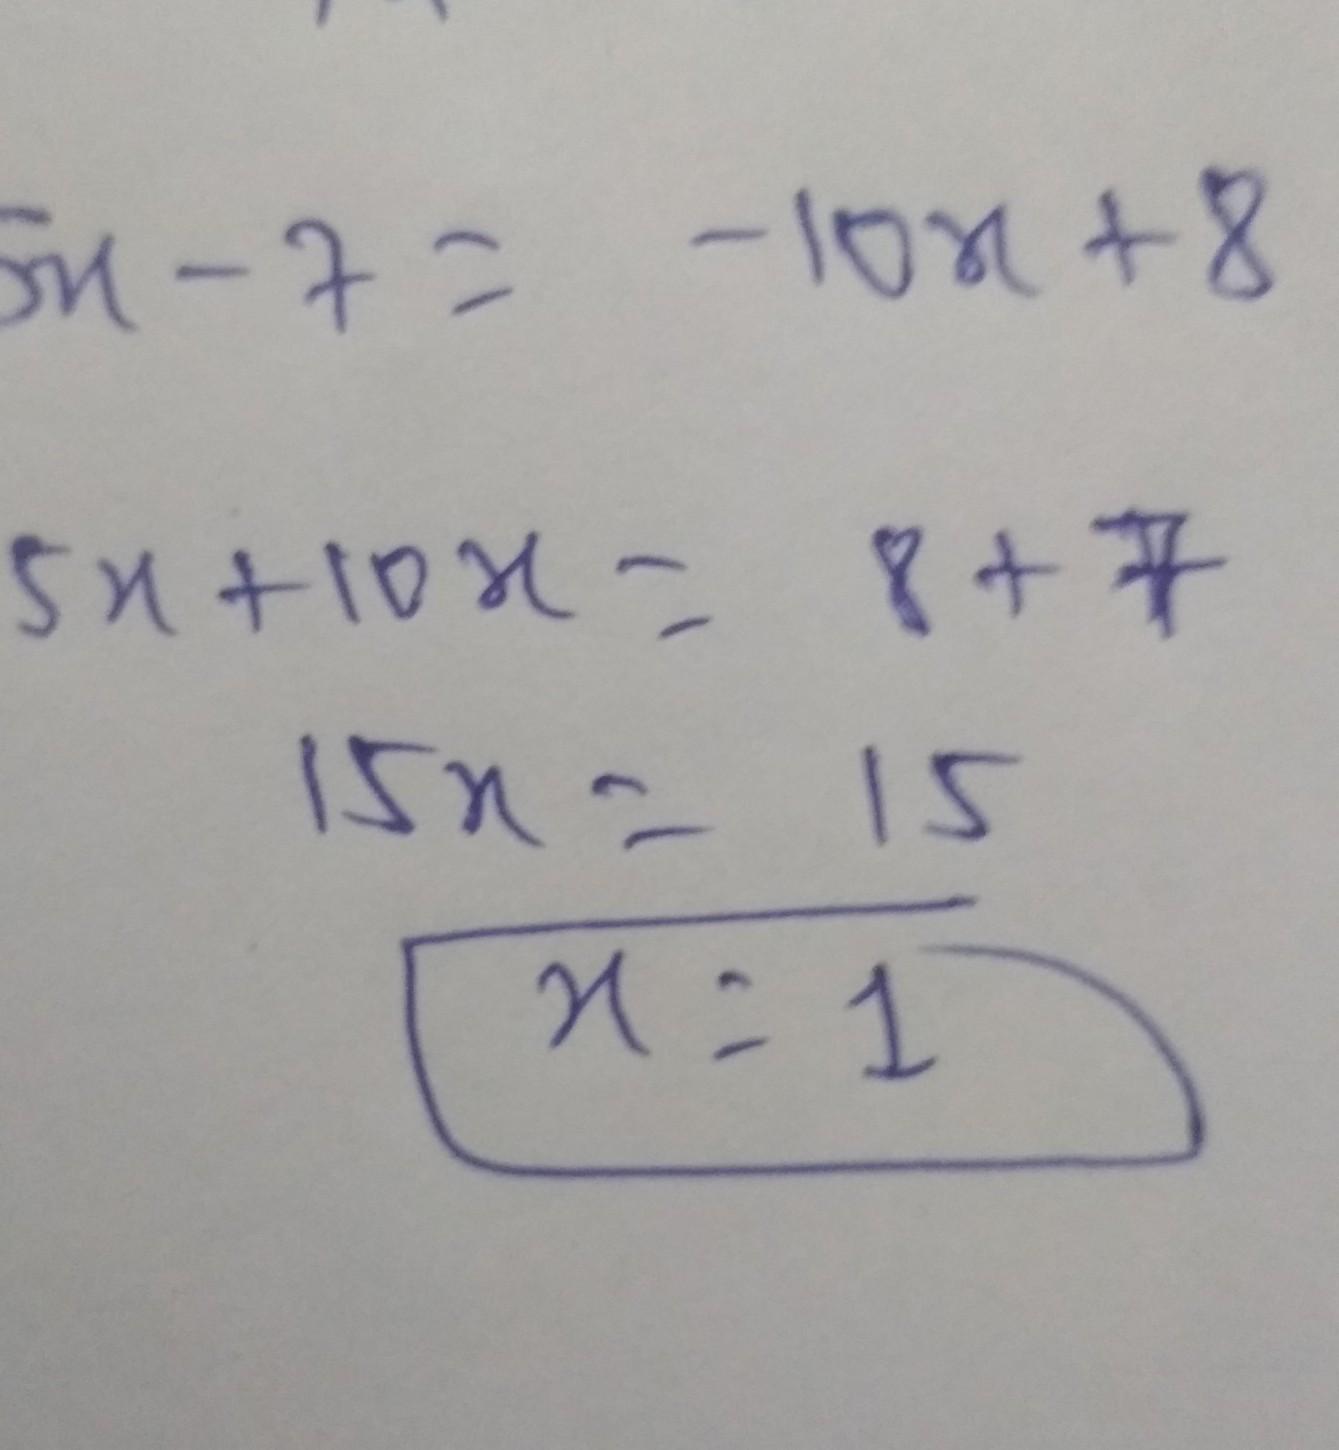 5x - 7 = -10x + 8
5x + 10x = 8 + 7
15x = 15
x = 1